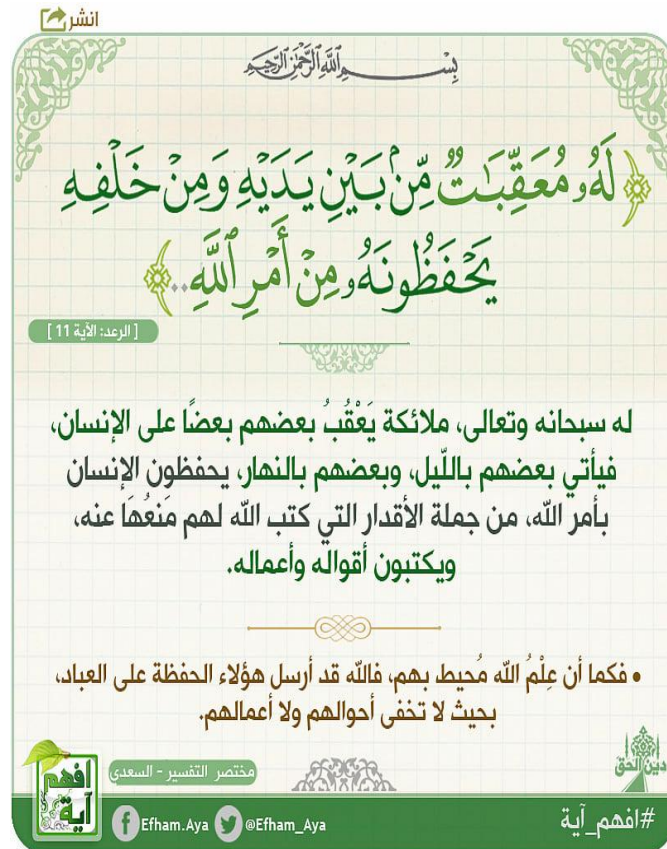 انشر
بِسْمِ اللَّهِ الرَّحْمَٰنِ الرَّحِيمِ
﴿لَهُۥ مُعَقِّبَٰتٌ مِّنۢ بَيْنِ يَدَيْهِ وَمِنْ خَلْفِهِ
يَحْفَظُونَهُۥ مِنْ أَمْرِ ٱللَّهِ..﴾
[ الرعد: الآية 11 ]
له سبحانه وتعالى، ملائكة يَعْقُبُ بعضهم بعضًا على الإنسان،
فيأتي بعضهم باللّيل، وبعضهم بالنهار، يحفظون الإنسان
بأمر الله، من جملة الأقدار التي كتب الله لهم مَنعُهَا عنه،
ويكتبون أقواله وأعماله.
• فكما أن عِلْمُ الله مُحيط بهم، فالله قد أرسل هؤلاء الحفظة على العباد،
بحيث لا تخفى أحوالهم ولا أعمالهم.
دين الحق
مختصر التفسير - السعدي
افهم
آية
Efham.Aya @Efham_Aya
#افهم_آية